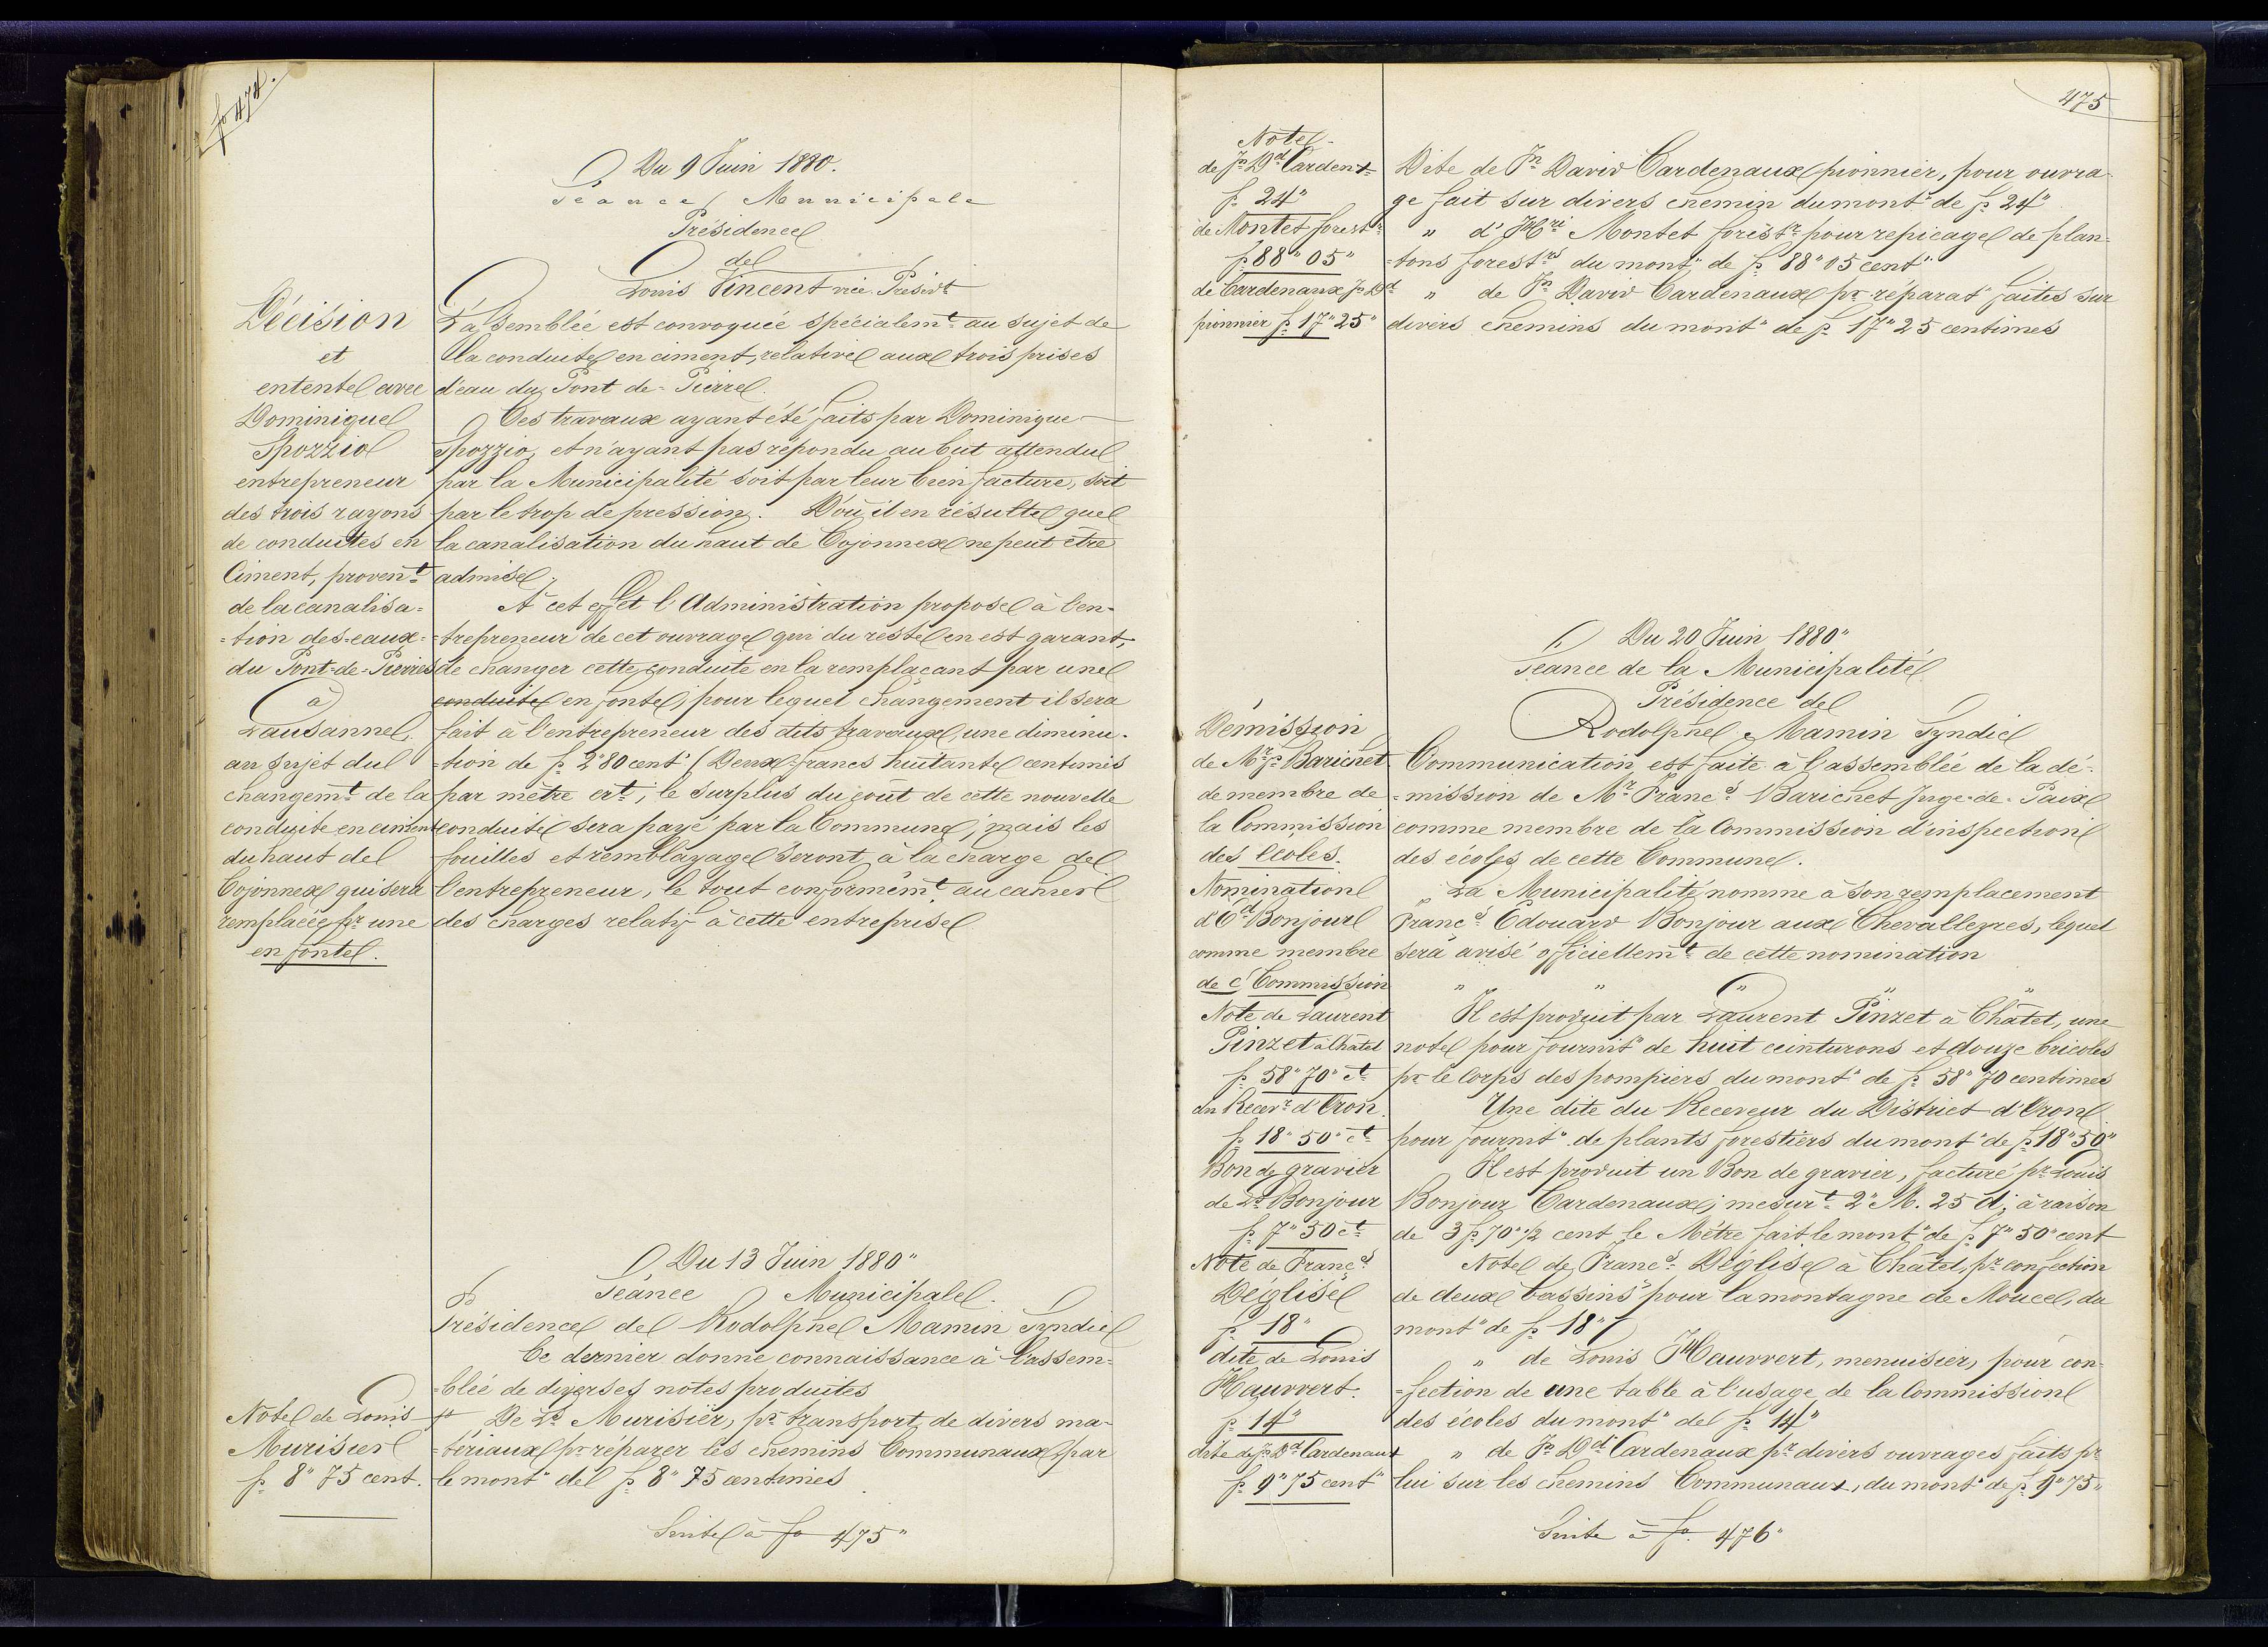 fo 474.
Du 9 Juin 1880.
Séance Municipale
Présidence
de
Louis Vincent vice Présidt
Décision
et
entente avec
Dominique
Spozzio
entrepreneur
des trois rayons
de conduites en
Ciment, provent
de la canalisa=
=tion des=eaux=
du Pont=de=Pierres
à
Lausanne,
au sujet du
changemt de la
conduite en ciment
du haut de
Cojonnex qui sera
remplacée pr une
en fonte.
L'assemblée est convoquée spécialemt au sujet de
la conduite en ciment, relative aux trois prises
d'eau du Pont de=Pierre.
Ces travaux ayant été faits par Dominique
Spozzio, et n'ayant pas répondu au but attendu
par la Municipalité soit par leur bienfacture, soit
par le trop de pression. D'où il en résulte que
la canalisation du haut de Cojonnex ne peut être
admise,
A cet effet l'Administration propose à l'en-
=trepreneur de cet ouvrage qui du reste en est garant,
de changer cette conduite en la remplaçant par une
conduite en fonte, pour lequel changement il sera
fait à l'entrepreneur des dits travaux, une diminu-
=tion de fr 2"80 cent" (Deux=francs huitante centimes
par mètre crt, le surplus du coût de cette nouvelle
conduite sera payé par la Commune, mais les
fouilles et remblayage seront à la charge de
l'entrepreneur, le tout conformémt au cahier
des charges relatif à cette entreprise
Du 13 Juin 1880"
Séance Municipale.
Présidence de Rodolphe Mamin Syndic
Ce dernier donne connaissance à l'assem=
=blée de diverses notes produites
Note de Louis
Murisier
fr 8" 75 cent.
De Ls Murisier, pr transport de divers ma-
=tériaux pr réparer les chemins Communaux, par
le mont" de fr 8" 75 centimes
Suite à fo 475"
475
Note
de Jn Dd Carden=
fr 24"
de Montet forestr
fr 88" 05"
de Cardenaux Jn Dd
pionnier fr 17"25"
Dite de Jn David Cardenaux pionnier, pour ouvra-
ge fait sur divers chemin du mont" de fr 24"
" d'Hri Montet forestr pour repicage de plan=
=tons forestrs du mont" de fr 88" 05 cent"
" de Jn David Cardenaux pr réparat" faites sur
divers chemins du mont" de fr 17"25 centimes
Du 20 Juin 1880"
Séance de la Municipalité
Présidence de
Rodolphe Mamin Syndic
Démission
de Mr Barichet
de membre de
la Commission
des écoles.
Communication est faite à l'assemblée de la dé-
=mission de Mr Francs Barichet Juge=de=Paix
comme membre de la Commission d'inspection
des écoles de cette Commune.
Nomination
d'Ed Bonjour
comme membre
de c Commission
La Municipalité nomme à son remplacement
Francs Edouard Bonjour aux Chevalleyres, lequel
sera avisé officiellemt de cette nomination
" " " "
Note de Laurent
Pinzet à Châtel
fr 58"70" ct
Il est produit par Laurent Pinzet à Châtel, une
note pour fournit" de huit ceinturons et douze bricoles
pr le Corps des pompiers du mont" de fr 58" 70 centimes
du Recevr d'Oron.
fr 18" 50" ct
Une dite du Receveur du District d'Oron
pour fournit" de plants forestiers du mont" de fr 18"50"
Bon de gravier
de Ls Bonjour
fr 7" 50 ct
Il est produit un Bon de gravier, facturé pr Louis
Bonjour Cardenaux, mesurt 2" M. 25 d, à raison
de 3 fr 70" 1/2 cent le Mètre fait le mont" de fr 7" 50" cent
Note de Francs
Déglise
fr 18"
Note de Francs Déglise à Châtel, pr confection
de deux bassins pour la montagne de Moucel, du
mont" de fr 18"
dite de Louis
Hauvvert.
fr 14"
" de Louis Hauvvert, menuisier, pour con-
=fection de une table à l'usage de la Commission
des écoles du mont" de fr 14"
dite de Jn Dd Cardenaux
fr 9"75 cent"
" de Jn Dd Cardenaux pr divers ouvrages faits pr
lui sur les chemins Communaux, du mont" de fr 9"75"
Suite à fo 476"